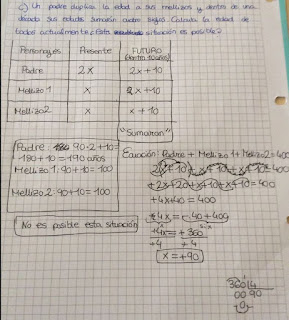 c) Un padre duplica la edad a sus mellizos y dentro de una
década sus edades sumarán cuatro siglos. Calcula la edad de
todos actualmente ¿Esta situación es posible?
Personajes Presente FUTURO
(dentro 10 años)
Padre 2x 2x + 10
Mellizo 1 x x + 10
Mellizo 2 x x + 10
"Sumaran"
Padre: 90·2+10=
180+10=190 años
Mellizo 1: 90+10=100
Mellizo 2: 90+10=100
No es posible esta situación
Ecuación: Padre + Mellizo 1 + Mellizo 2 = 400
2x+10+x+10+x+10=400
+4x=-40+400
+4x = +360
+4 +4
x=+90
360 4
00 90
0